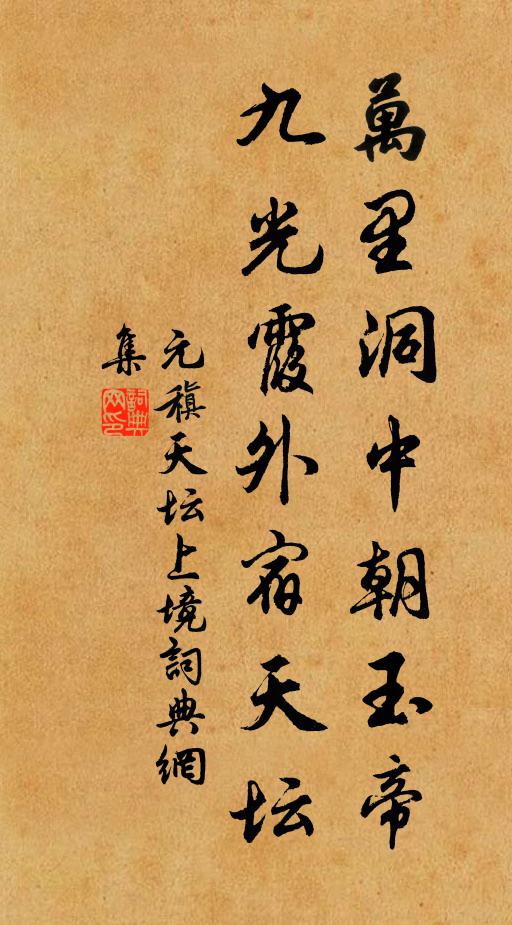 萬里洞中朝玉帝
九光霞外宿天坛
元稹天坛上境詞典網
集
詞典
网印